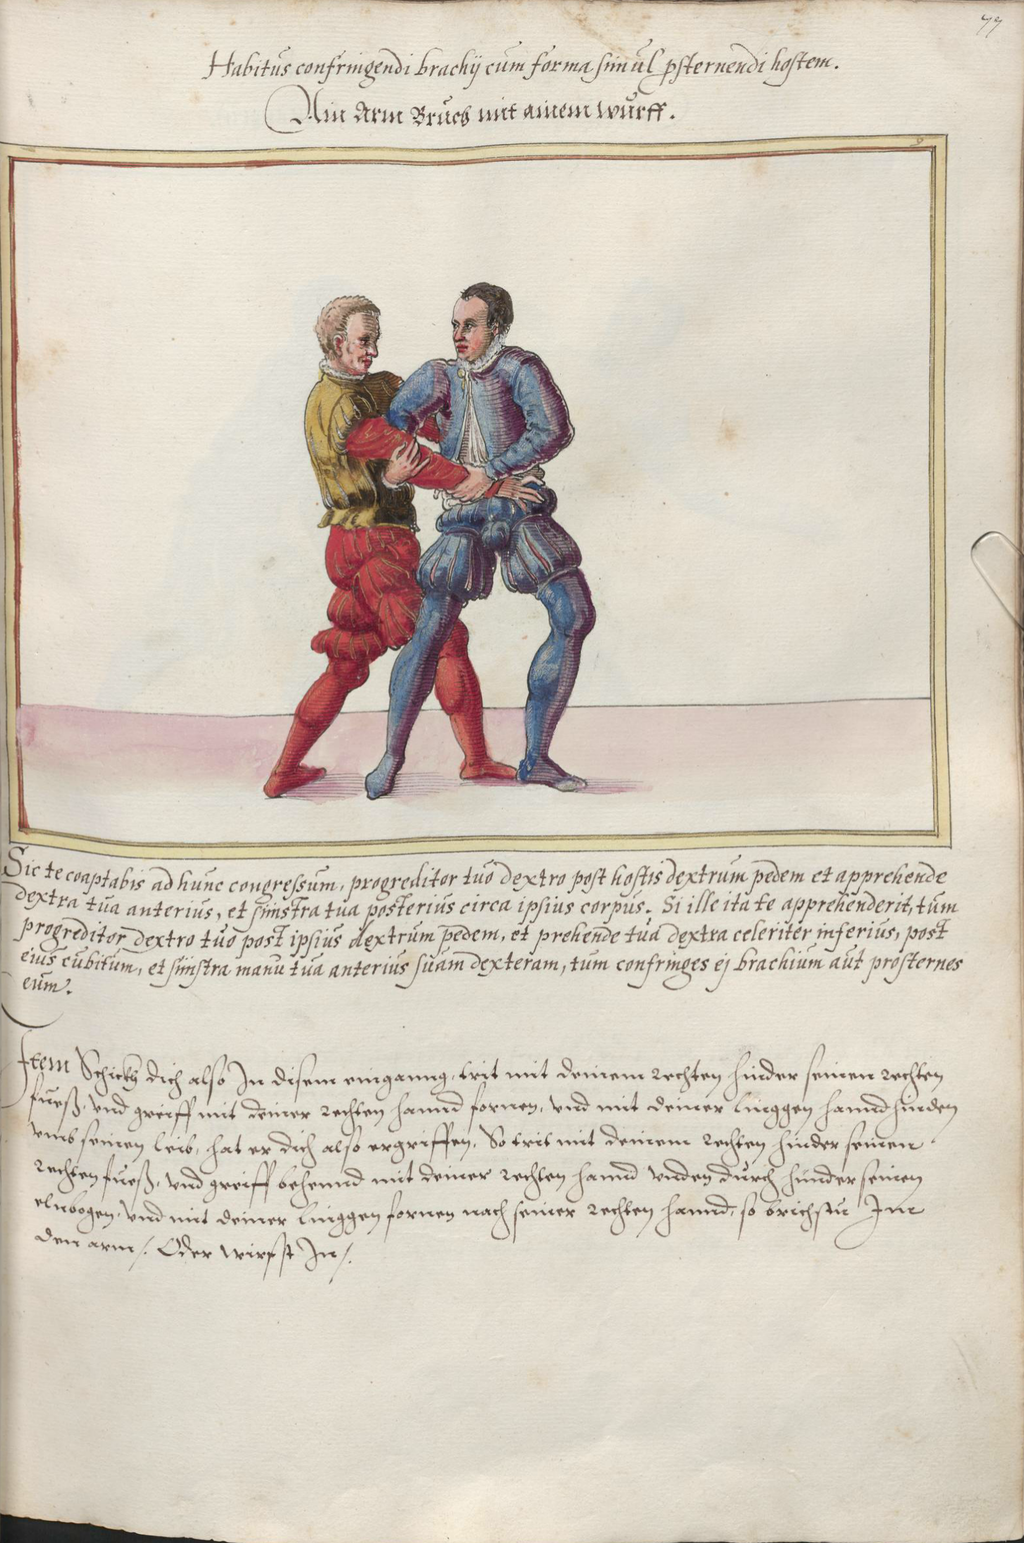 77
Habitus confringendi brachij cum forma simul psternendi hostem.
Ain Arm Bruch mit ainem wurff.
9
Sic te coaptabis ad hunc congressum, progreditor tuo dextro post hostis dextrum pedem et apprehende
dextra tua anterius, et sinistra tua posterius circa ipsius corpus. Si ille ita te apprehenderit, tum
progreditor dextro tuo post ipsius dextrum pedem, et prehende tua dextra celeriter inferius, post
eius cubitum, et sinistra manu tua anterius suam dexteram, tum confringes ej brachium aut prosternes
eum.
Item Schickh dich also In disem einganng, trit mit deinem rechten hinder seinen rechten
fueß, vnd greiff mit deiner rechten hannd fornen, vnd mit deiner linggen hannd hinden
vmb seinen leib, hat er dich also ergriffen, So trit mit deinem rechten hinder seinen
rechten fueß, vnd greiff behennd mit deiner rechten hannd vnden durch hinder seinen
elnbogen, vnd mit deiner linggen fornen nach seiner rechten hannd, so brichstu Im
den arm /. Oder wirfst In /.